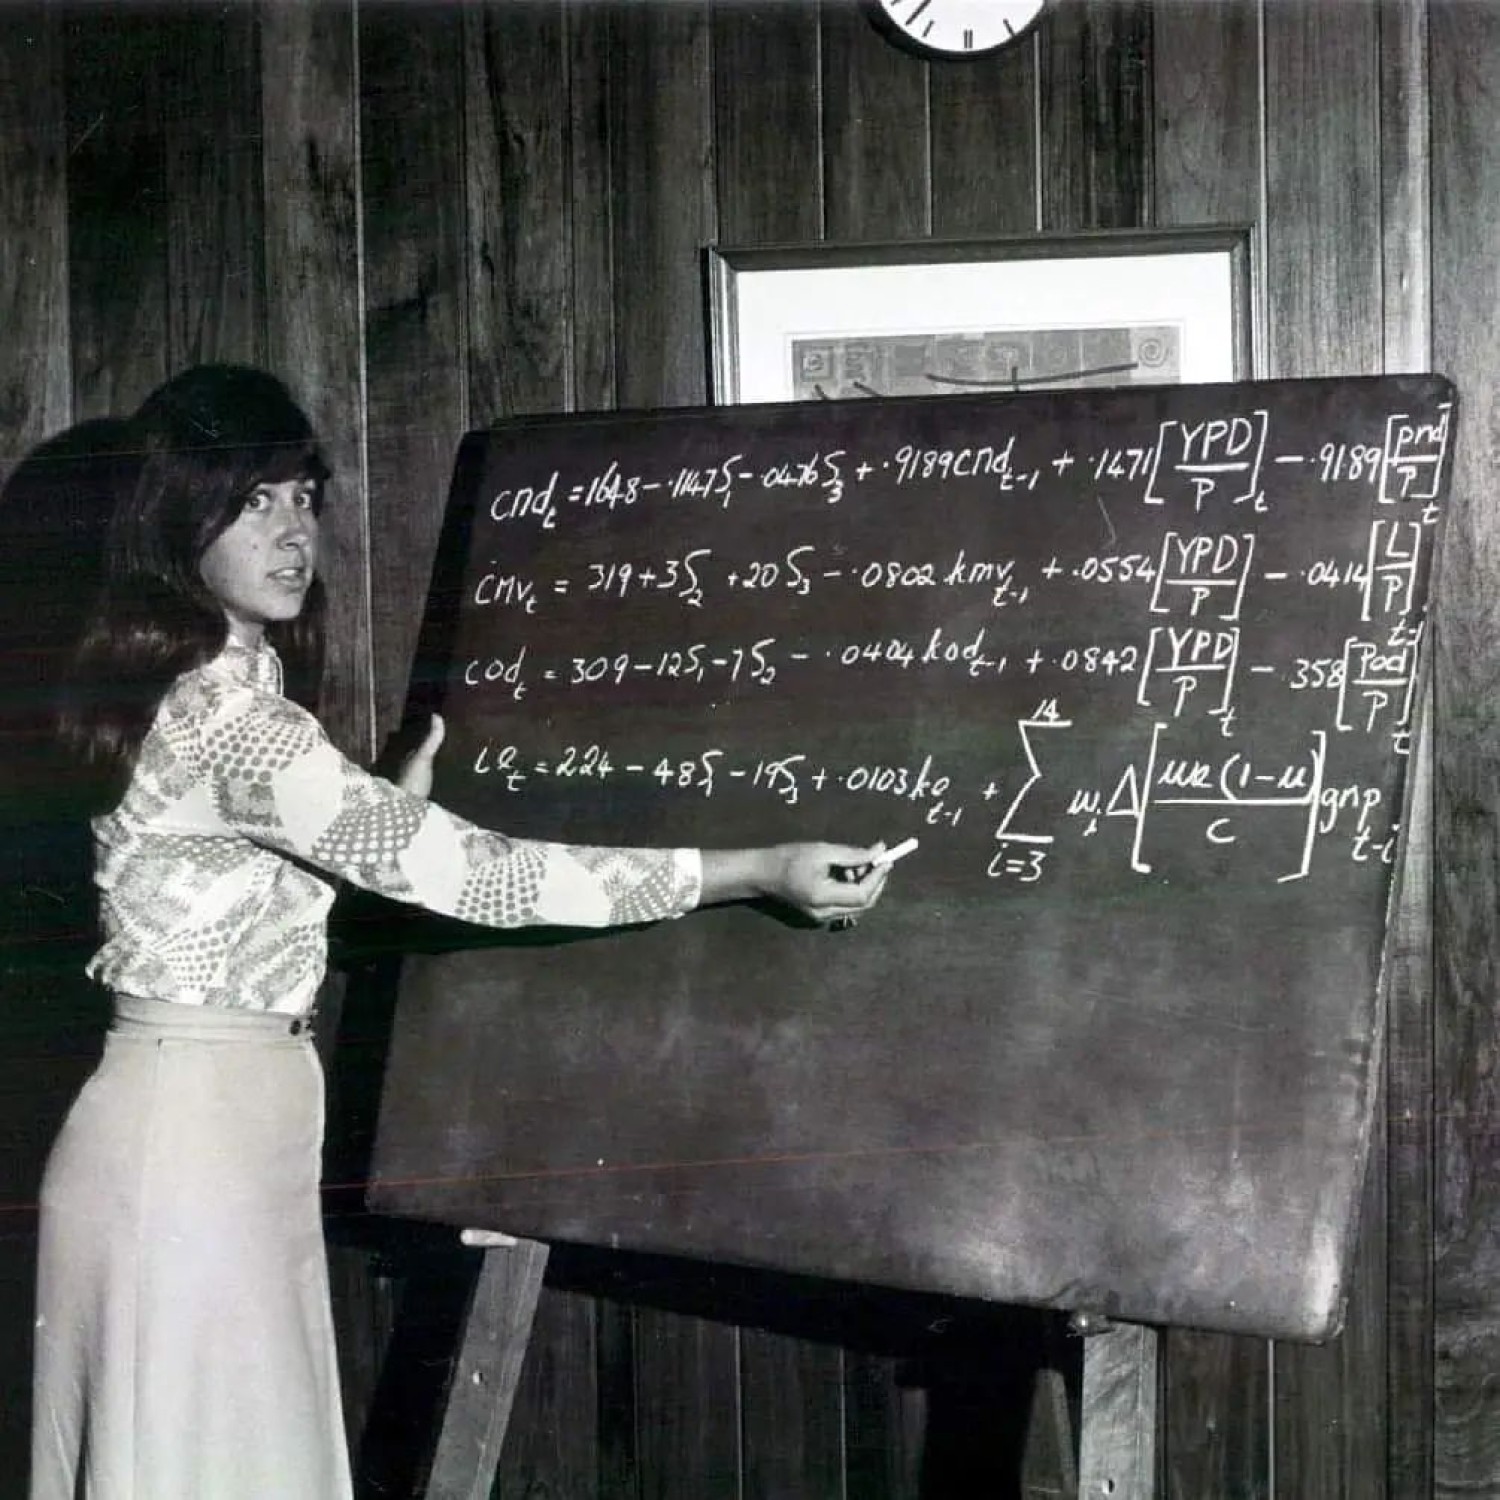 cnd_t = 1648 - .1147S_1 - .0476S_3 + .9189cnd_t-1 + .1471[YPD/P]_t - .9189[pnd/P]_t
cmv_t = 319 + 3S_2 + 20S_3 - .0802kmv_t-1 + .0554[YPD/P] - .0414[L/P]_t-1
cod_t = 309 - 12S_1 - 7S_2 - .0404kod_t-1 + .0842[YPD/P]_t - 358[Pod/P]_t
ie_t = 224 - 48S_1 - 19S_3 + .0103ke_t-1 + 14 Σ i=3 w_i Δ[wr(1-u)/c]gnp_t-i